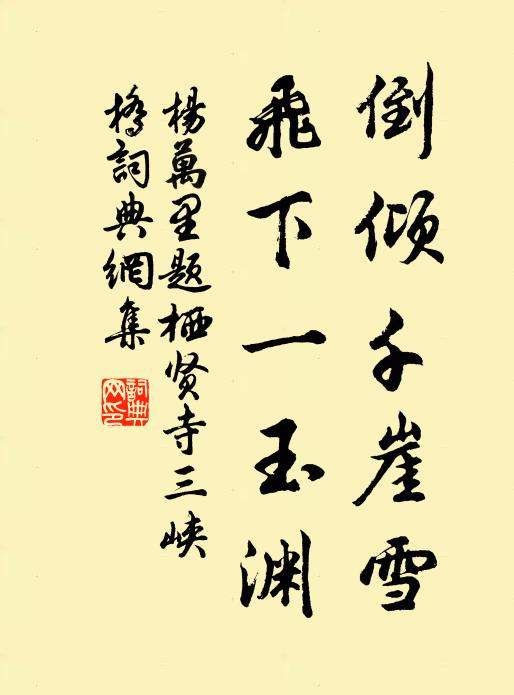 倒倾千崖雪
飛下一玉渊
楊萬里題栖贤寺三峡
橋詞典網集
詞典
网印